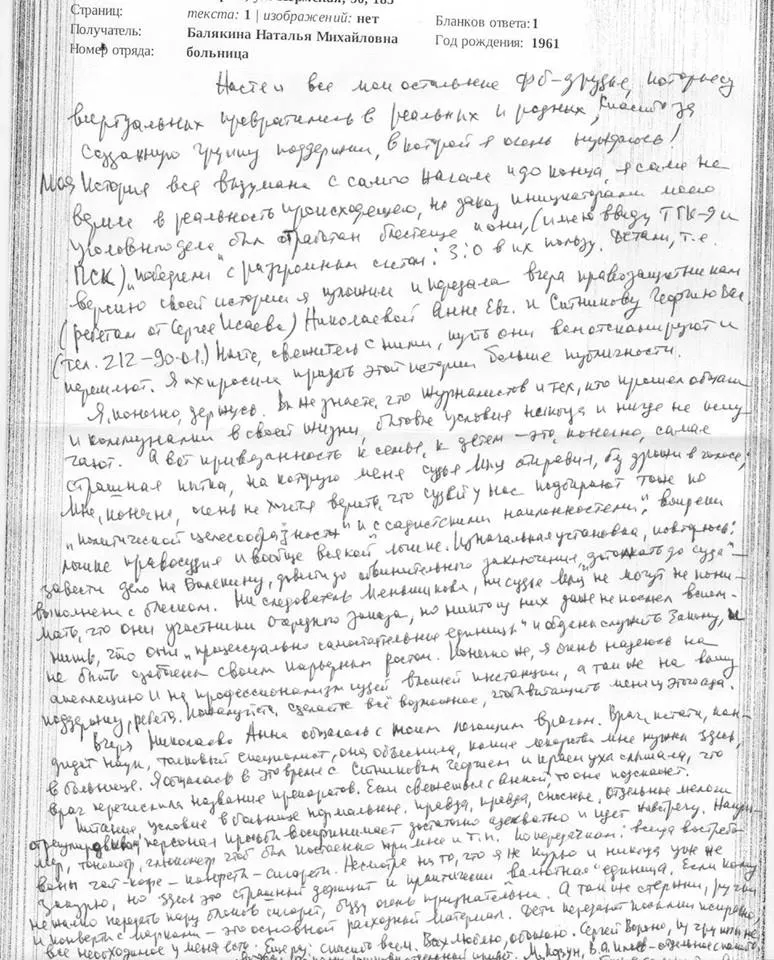 Страниц: текста: 1 | изображений: нет Бланков ответа: 1
Получатель: Балякина Наталья Михайловна Год рождения: 1961
Номер отряда: больница
Настя и все мои остальные фб-друзья, которые из
виртуальных превратились в реальных и родных, спасибо за
созданную группу поддержки, в которой я очень нуждаюсь!
Моя История вся выдумана с самого начала и до конца, я сама не
верила в реальность происходящего, но заказ инициаторами моего
уголовного дела был отработан блестяще и они, (имею ввиду ТГК-9 и
ПСК) "победили" с разгромным счетом: 3:0 в их пользу. Детали, т.е.
версию своей истории я изложила и передала вчера правозащитникам
(ребятам от Сергея Исаева) Николаевой Анне Евг. и Ситникову Георгию
(тел. 212-90-01.) Настя, свяжитесь с ними, пусть они вам отсканируют и
перешлют. Я их просила придать этой истории больше публичности.
Я, конечно, держусь. Вы же знаете, что журналистов и тех, кто прошел общаги
и коммуналки в своей жизни, бытовые условия никогда и нигде не испу-
гают. А вот привязанность к семье, к детям - это, конечно, самая
страшная пытка, на которую меня судья отправил, без дрожи в голосе.
Мне, конечно, очень не хочется верить, что судей у нас подбирают тоже по
"политической целесообразности" и "с садистскими наклонностями", вопреки
логике правосудия и вообще всякой логике. Изначальная установка, повторюсь:
завести дело на Балякину, довести до обвинительного заключения, "дотолкать до суда" -
выполнена с блеском. Ни следователь Меньшикова, ни судья не могут не пони-
мать, что они участники очередного заказа, но никто из них даже не посмел вспом-
нить, что они "процессуально самостоятельные единицы" и обязаны служить Закону, и
не быть озабочены своим карьерным ростом. Конечно же, я очень надеюсь на
апелляцию и на профессионализм судей высшей инстанции, а так же на вашу
поддержку, ребята. Пожалуйста, сделайте всё возможное, чтобы вытащить меня из этого ада.
Вчера Николаева Анна общалась с моим лечащим врачом. Врач, кстати, кан-
дидат наук, толковый специалист, она объяснила, какие лекарства мне нужны здесь,
в больнице. Я общалась в это время с Ситниковым Георгием и краем уха слышала, что
врач перечислила название препаратов. Если свяжетесь с Анной, то она подскажет.
Питание, условия в больнице нормальные, правда, правда, сносные, отдельные мелочи
отрегулированы, персонал просьбы воспринимает достаточно адекватно и идет навстречу. Напри-
мер, тонометр, глюкометр чтоб был постоянно при мне и т.п. По передачкам: всегда востребо-
ваны чай-кофе - конфеты - сигареты. Несмотря на то, что я не курю и никогда уже не
закурю, но здесь это страшный дефицит и практически валютная единица. Если кому
не жалко передать пару блоков сигарет, буду очень признательна. А так же стержни, ручки
и конверты с марками - это основной расходный материал. Дети передают посылки исправно,
все необходимое у меня есть. Еще раз: спасибо всем. Всех люблю, обожаю. Сергей